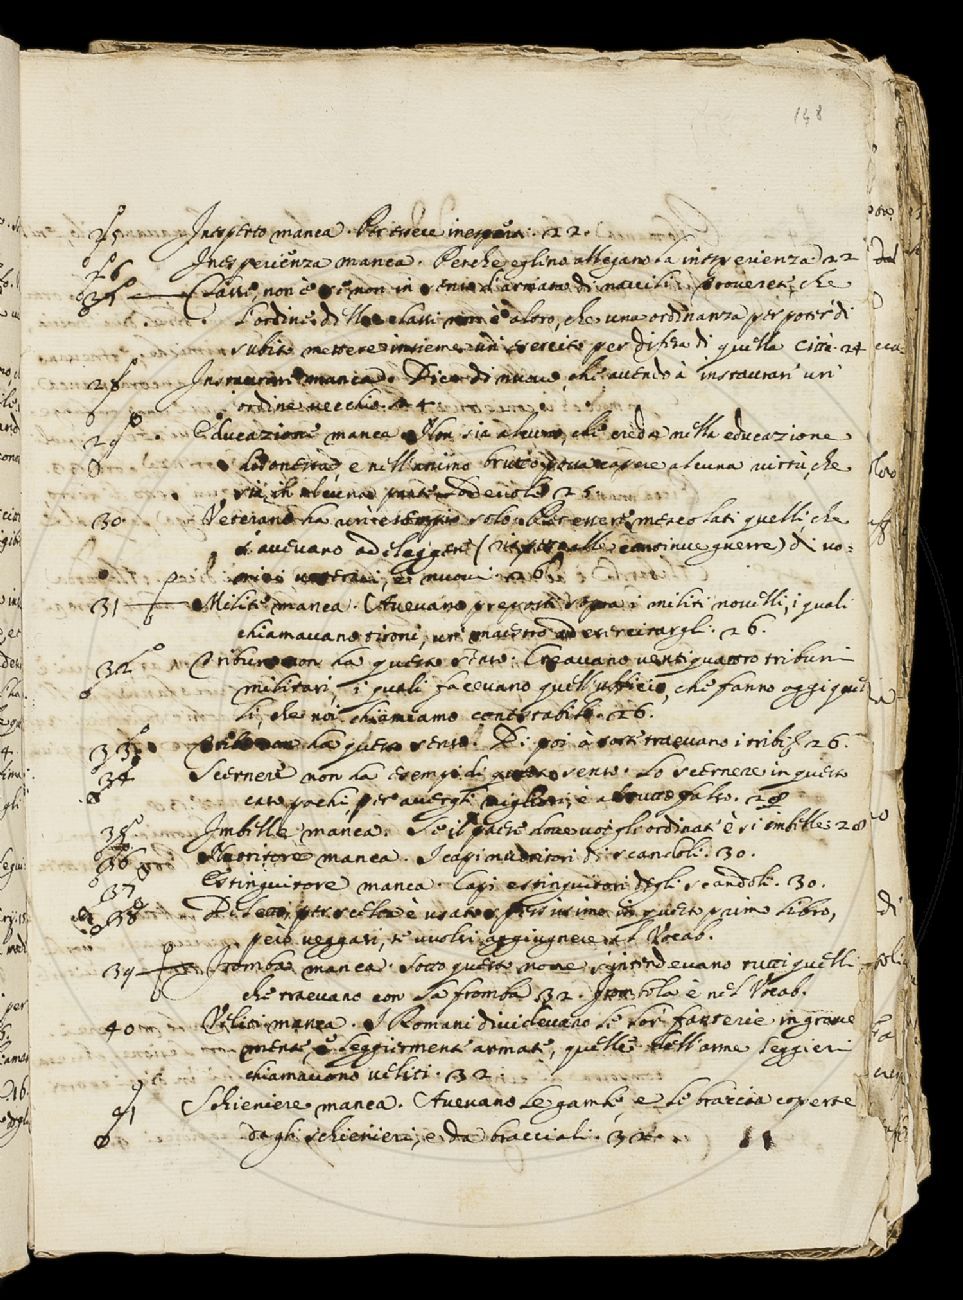 148
25 Inesperto manca. Per essere inesperti. 22.
26 Inesperienza manca. Perche eglino allegano la inesperienza 22
27 Classe, non è se non in senso d'armata di navili. Troverete, che
l'ordine delle classi non è altro, che una ordinanza per poter di
subito mettere insieme un esercito per difesa di quella città. 24
28 Instaurare manca. Dico di nuovo, che avendo à instaurare un'
ordine vecchio. 24.
29 Educazione manca. Non sia alcuno, che creda nella educazione
disonesta e nell'animo brutto possa capere alcuna virtù, che
sia in alcuna parte lodevole 25
30 Veterano ha un'esempio solo. Per essere mescolati quelli, che
s'avevano ad eleggere (rispetto alle continue guerre) di uo-
mini veterani, e nuovi. 26
31 Milite manca. Avevano preposti sopra i militi novelli, i quali
chiamavano tironi, un maestro ad esercitargli. 26.
32 Tribuno non ha questo stato. Creavano ventiquattro tribuni
militari, i quali facevano quell'ufficio, che fanno oggi quel
li, che noi chiamiamo contestabili. 26.
33 ha questo senso. Di poi à sorte traevano i tribi 26.
34 Scernere non ha esempi di questo senso. Lo scernere in questo
caso pochi per avergli migliori, è al tutto falso. 28
35 Imbelle manca. Se il paese dove voi gli ordinate è sì imbelle. 28
36 Nutritore manca. I capi nutritori di scandoli. 30.
37 Estinguitore manca. Capi estinguitori degli scandoli. 30.
38 per scelta è usato spessissimo in questo primo libro,
però veggasi, se vuolsi aggiugnere al Vocab.
39 Fromba manca. Sotto questo nome s'intendevano tutti quelli
che traevano con la fromba 32. Frombola è nel Vocab.
40 Veliti manca. I Romani dividevano le lor fanterie in grave
mente, e leggiermente armate, quelle dell'arme leggieri
chiamavono veliti. 32.
41 Schieniere manca. Avevano le gambe, e le braccia coperte
dagli schienieri, e da bracciali. 32.
11